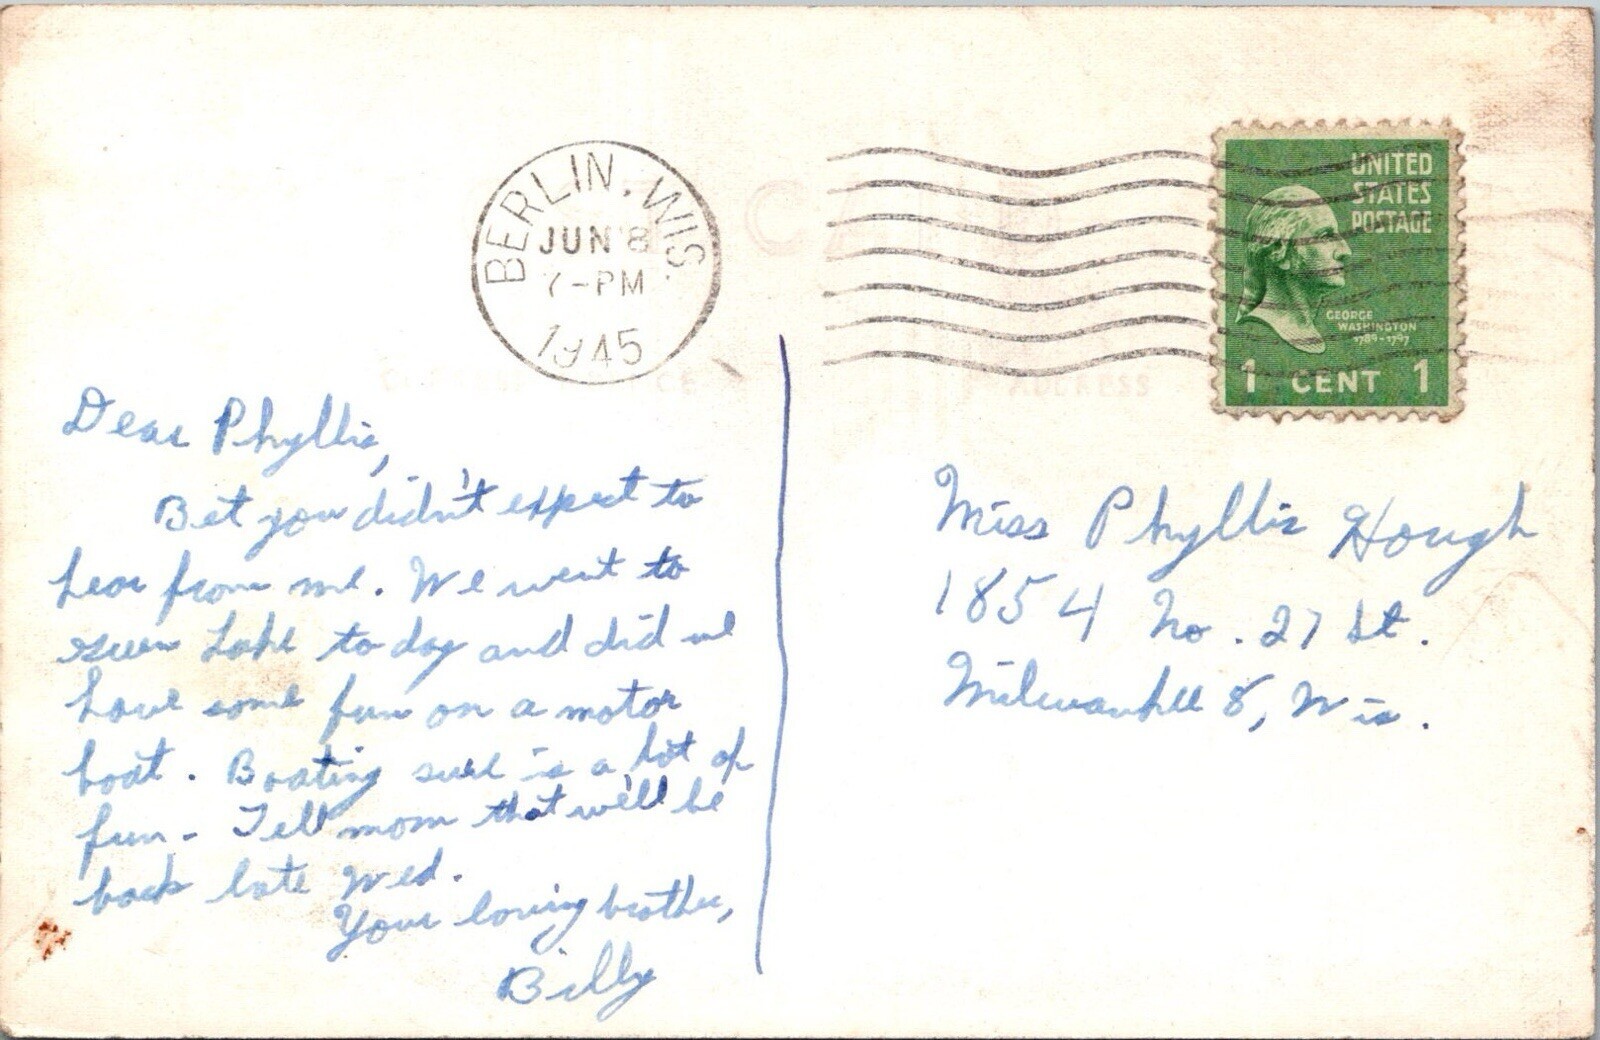 BERLIN, WIS.
JUN 8
7-PM
1945
UNITED
STATES
POSTAGE
GEORGE
WASHINGTON
1789-1797
1 CENT 1
ADDRESS
Dear Phyllis,
Bet you didn't expect to
hear from me. We went to
Green Lake to day and did we
have some fun on a motor
boat. Boating sure is a lot of
fun - Tell mom that we'll be
back late Wed.
Your loving brother,
Billy
Miss Phyllis Hough
1854 No. 27 St.
Milwaukee 8, Wis.